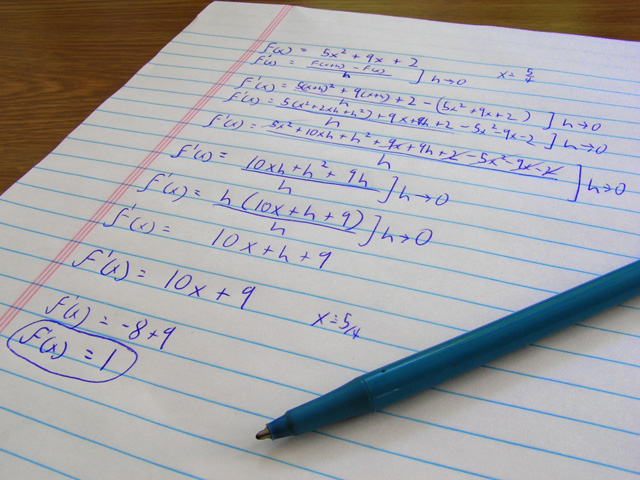 f(x) = 5x² + 9x + 2
f'(x) = f(x+h) - f(x) / h ] h→0 x = 5/4
f'(x) = 5(x+h)² + 9(x+h) + 2 - (5x² + 9x + 2) / h ] h→0
f'(x) = 5(x² + 2xh + h²) + 9x + 9h + 2 - 5x² - 9x - 2 / h ] h→0
f'(x) = 5x² + 10xh + h² + 9x + 9h + 2 - 5x² - 9x - 2 / h ] h→0
f'(x) = 10xh + h² + 9h / h ] h→0
f'(x) = h(10x + h + 9) / h ] h→0
f'(x) = 10x + h + 9
f'(x) = 10x + 9
f'(x) = -8 + 9 x = 5/4
f'(x) = 1